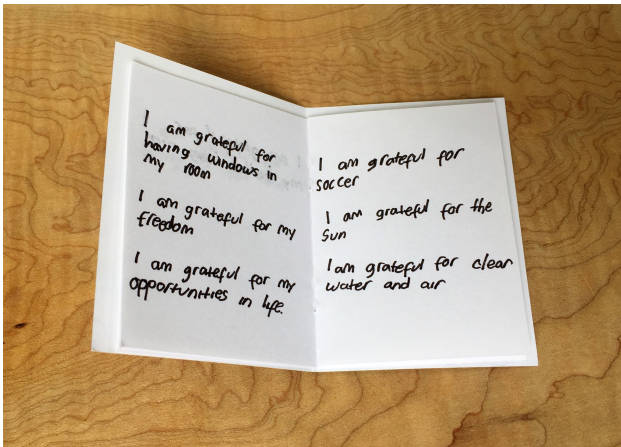 I am grateful for
having windows in
my room
I am grateful for my
freedom
I am grateful for my
opportunities in life.
I am grateful for
soccer
I am grateful for the
sun
I am grateful for clear
water and air